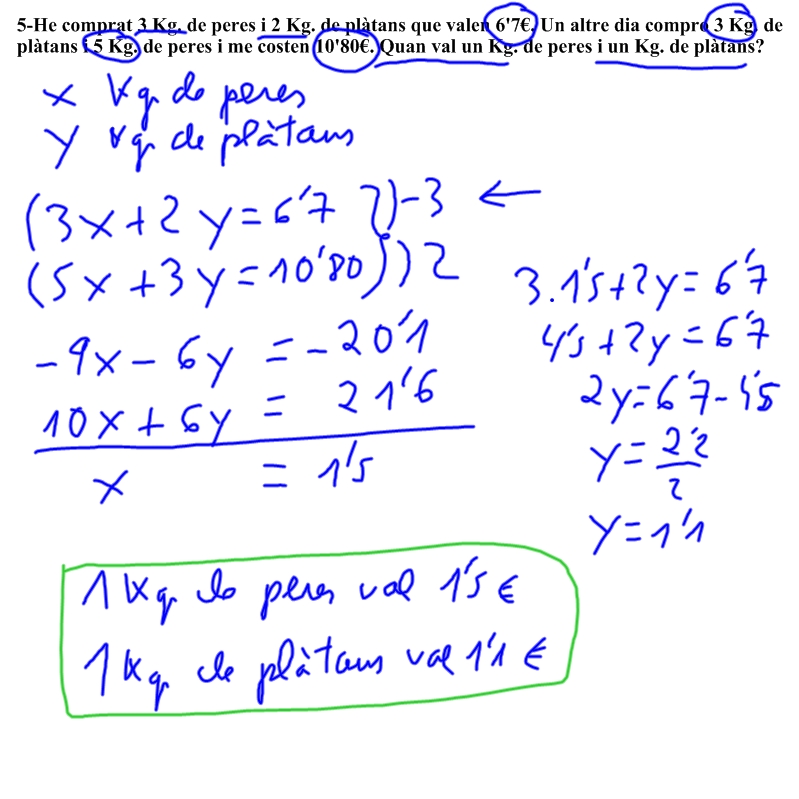 5-He comprat 3 Kg. de peres i 2 Kg. de plàtans que valen 6'7€. Un altre dia compro 3 Kg. de
plàtans i 5 Kg. de peres i me costen 10'80€. Quan val un Kg. de peres i un Kg. de plàtans?
x Kg. de peres
y Kg. de plàtans
(3x+2y=6'7 )-3 ←
(5x+3y=10'80))2
-9x-6y = -20'1
10x+6y = 21'6
x = 1'5
3.1'5+2y=6'7
4'5+2y=6'7
2y=6'7-4'5
y=2'2/2
y=1'1
1 Kg. de peres val 1'5 €
1 Kg. de plàtans val 1'1 €